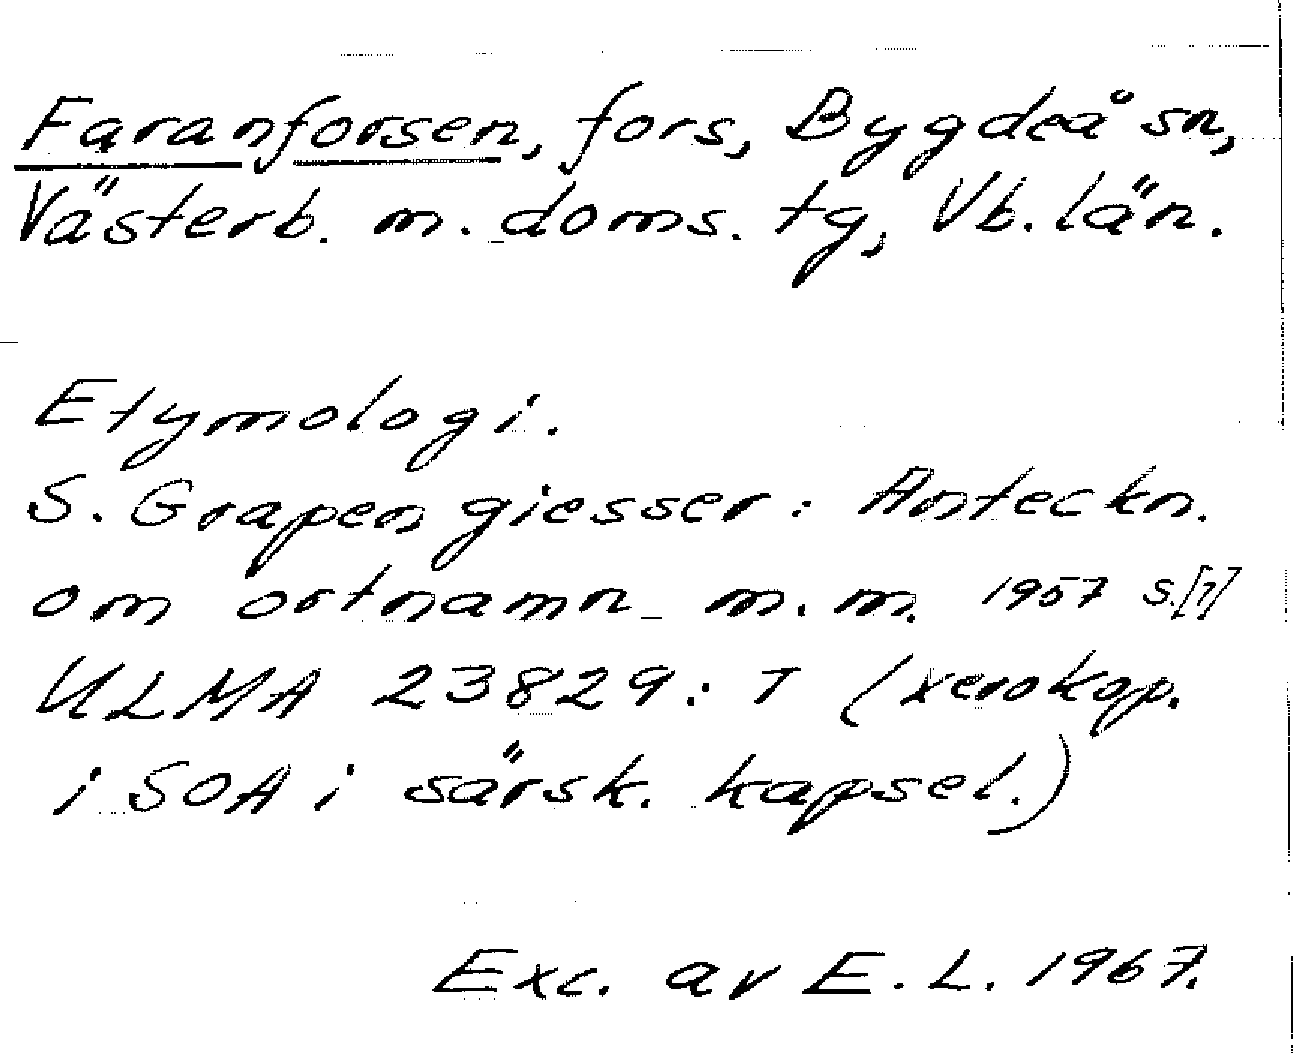 Faranforsen, fors, Bygdeå sn,
Västerb. m. doms. tg, Vb. län.
Etymologi.
S. Grapengiesser: Anteckn.
om ortnamn m.m. 1957 s.[7]
ULMA 23829: T (xerokop.
i SOA i särsk. kapsel.)
Exc. av E. L. 1967.